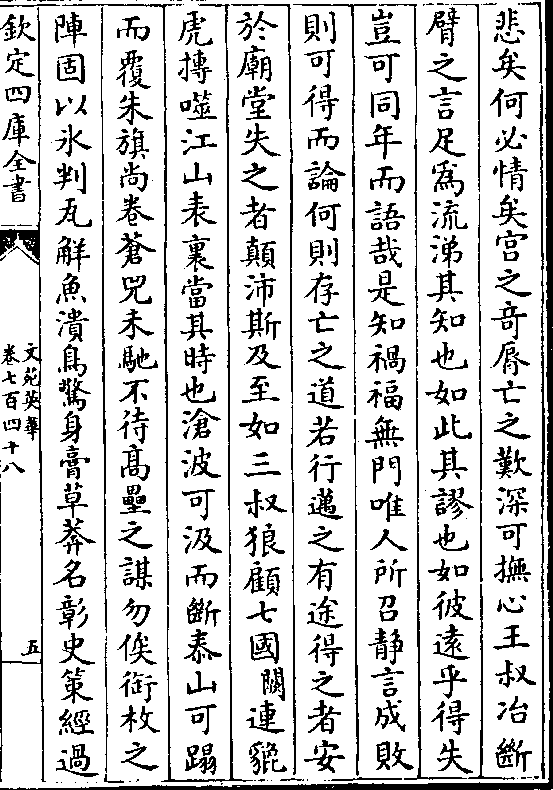 悲矣何必情矣宫之竒脣亡之歎深可撫心王叔冶斷
臂之言足為流涕其知也如此其謬也如彼逺乎得失
豈可同年而語哉是知禍福無門唯人所召静言成敗
則可得而論何則存亡之道若行邁之有途得之者安
於廟堂失之者顛沛斯及至如三叔狼顧七國關連貔
虎摶噬江山表裏當其時也滄波可汲而斷泰山可蹋
而覆朱旗尚卷蒼兕未馳不待髙壘之謀勿俟銜枚之
陣固以氷判瓦解魚潰鳥驚身膏草莾名彰史策經過
欽定四庫全書
文苑英華
卷七百四十八
五